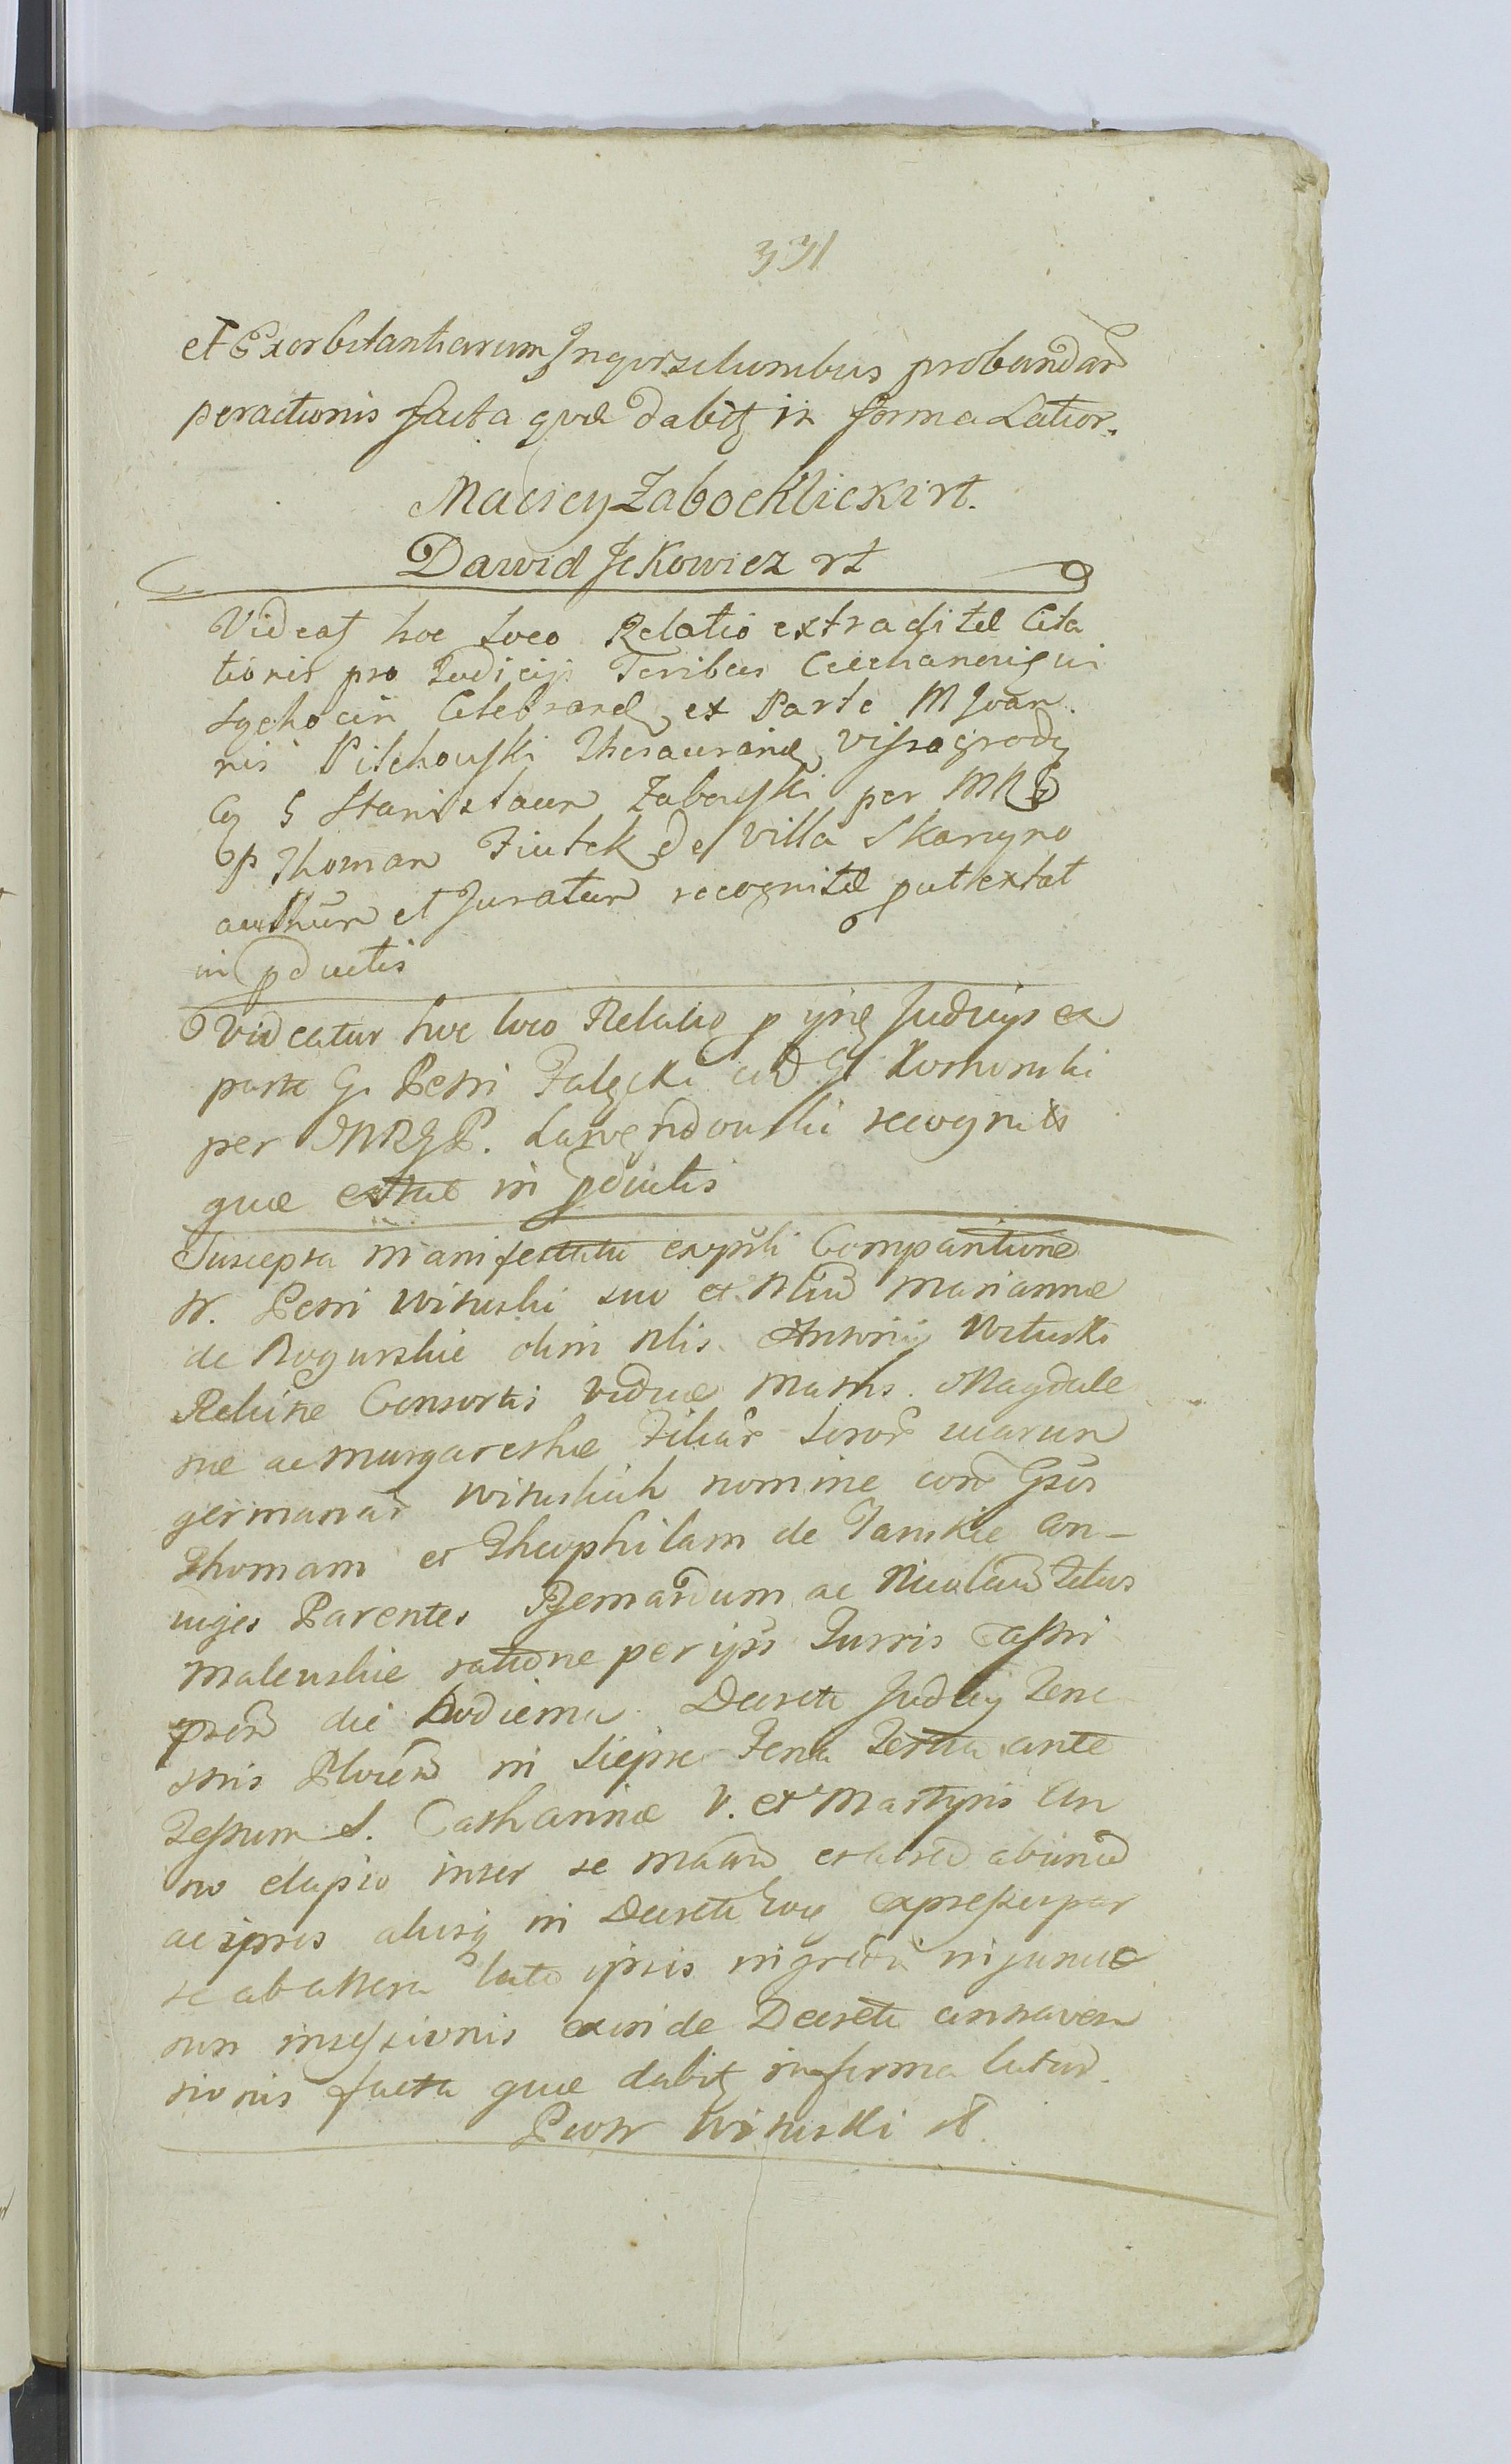 331
et Exorbitantiarum Inqvisitionibus probandar
peractionis facta qvæ dabitz in forma Latior.
Maciey Zabocklicki rt.
Dawid Jckowicz rt
Videatz hoc Loco Relatio extraditæ Cita
tionis pro Judicijs Terribus Ciechanovien in
Sychocin Celebrand ex Parte M Joan
nis Pilchowski Thesaurarij Vissagrodz
Cq G Stanislaum Zaboyski per MRG
P Thomam Fiutek de Villa Skaryno
authum et Juratum recognitæ put extat
in pductis
Videatur hoc loco Relatio p ijsd Judicijs ex
parte G. Petri Falęcki ad G Koshowski
per MRGP. Lawendowski recognita
quæ extat in pductis
Suscepta manifestatio ex psli Comparitione
N. Petri Wituski suo et Nliũ Mariannæ
de Rogurskie olim Nlis Antonij Wituski
Relictæ Consortis Viduæ Matris Magdale
næ ac Margarethæ Filiar Soror suarum
germanar Wituskich nomine con Gsos
Thomam et Theophilam de Janikie Con-
iuges Parentes Bernardum ac Nicolaum Natus
Maleuskie ratione per ipsos Turris Castri
psen die hodierna Decreti Judicij Terre
stris Plocen in Sieprc Feria Tertia ante
Festum S. Catharinæ V. et Martyris An
no elapso inter se ab una
ac ipsos alijsq in Decreto hoc expressis par
te ab altera lato ipsis injunctæ
non insessionis exinde Decreti contraven
tionis facta quæ dabitz in forma latior.
Piotr Wituski rt